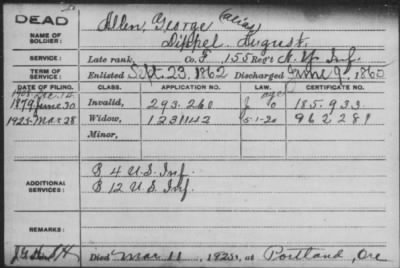 DEAD
NAME OF SOLDIER:
Allen, George (alias)
Dippel, August.
SERVICE:
Late rank Co. F. 155 Reg't N. Y. Inf.
TERM OF SERVICE:
Enlisted Sept. 23, 1862 Discharged June 9, 1865
DATE OF FILING. CLASS. APPLICATION NO. LAW. CERTIFICATE NO.
1879 June 30 Invalid, 293.260 185.933
1925-Mar 28 Widow, 1231142 5-1-20 962281
Minor,
ADDITIONAL SERVICES:
B 4 U.S. Inf.
B 12 U.S. Inf.
REMARKS:
Died Mar. 11, 1925, at Portland, Ore